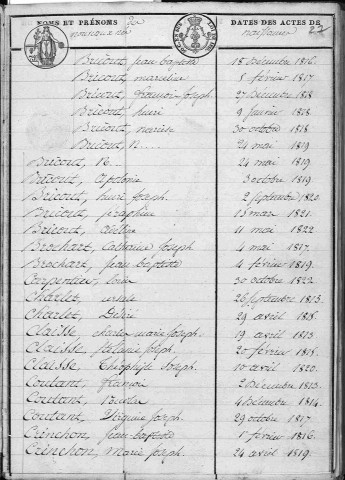 NOMS ET PRÉNOMS DATES DES ACTES DE
naissance 22
Bricout, jean baptiste 18 décembre 1816.
Bricout, marcelin 8 février 1817.
Bricout, françois joseph 27 décembre 1818
Bricout, henri 9 janvier 1818.
Bricout, narcisse 30 octobre 1818.
Bricout, N.... 24 mai 1819
Bricout, N... 24 mai 1819.
Bricout, Apolonie 3 octobre 1819.
Bricout, henri Joseph 2 septembre 1820.
Bricout, Séraphine 13 mars 1821.
Bricout, 11 mai 1822
Brochart, Catherine Joseph 4 mai 1817.
Brochart, jean baptiste 4 février 1819.
Carpentier, Louis 30 octobre 1822.
Charlet, 26 septembre 1813.
Charlet, Désiré 29 avril 1818.
Claisse charles marie joseph. 19 avril 1813
Claisse, Mélanie Joseph. 20 février 1818.
Claisse, Théophile Joseph. 10 avril 1820.
Coutant, françois 2 décembre 1813.
Coutant, 4 décembre 1814.
Coutant, Virginie Joseph. 29 octobre 1817.
Crinchon, jean-baptiste 8 février 1816.
Crinchon, marie joseph. 24 avril 1819.